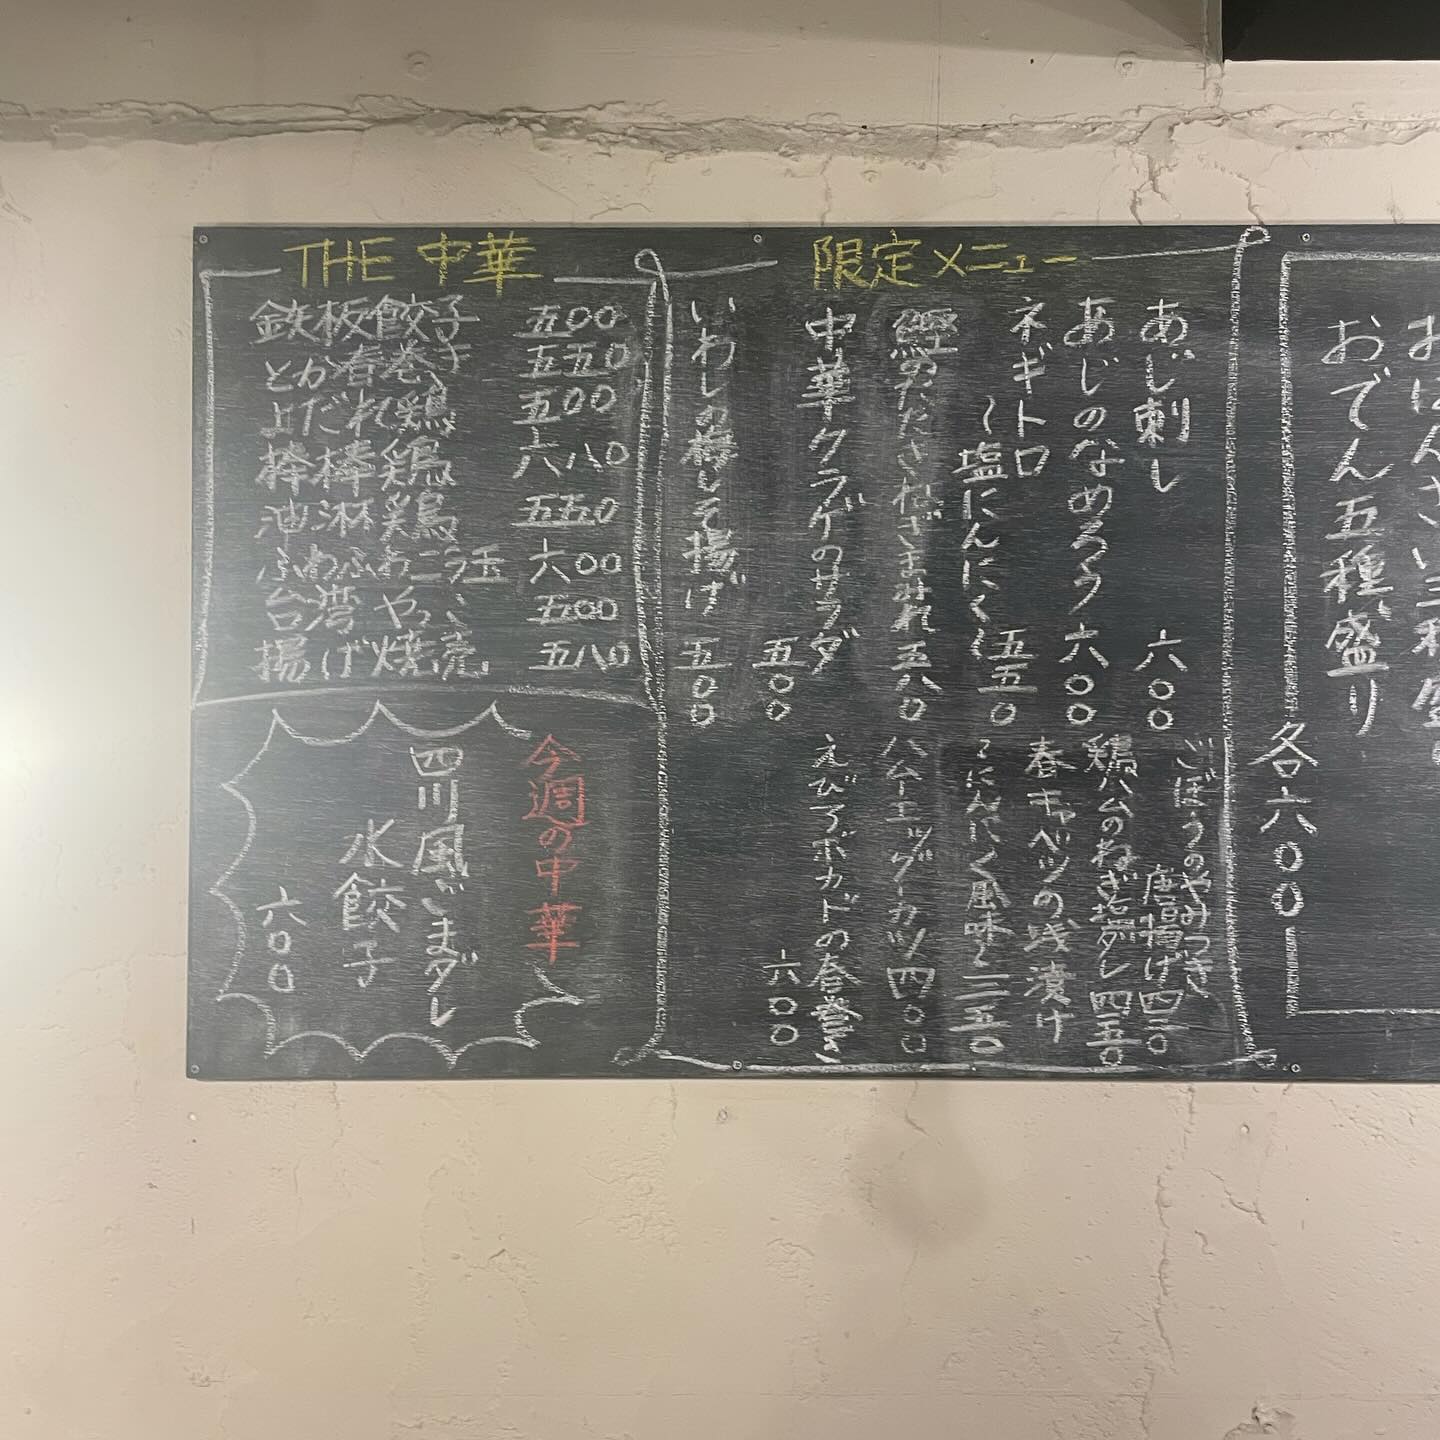 THE 中華
鉄板餃子 五00
とか春巻き 五五0
よだれ鶏 五00
棒棒鶏 六八0
油淋鶏 五五0
ふわふわニラ玉 六00
台湾やっこ 五00
揚げ焼売 五八0
今週の中華
四川風ごまダレ
水餃子
六00
限定メニュー
あじ刺し 六00
あじのなめろう 六00
ネギトロ
〜塩にんにく〜 五五0
鰹のたたき ねぎまみれ 五八0
中華クラゲのサラダ
五00
いわしの梅しそ揚げ 五00
ごぼうのやみつき
唐揚げ 四二0
鶏ハムのねぎ塩ダレ 四五0
春キャベツの浅漬け
〜にんにく風味〜 三五0
ハムエッグーカツ 四00
えびアボカドの春巻き
六00
おでん五種盛り
各六00